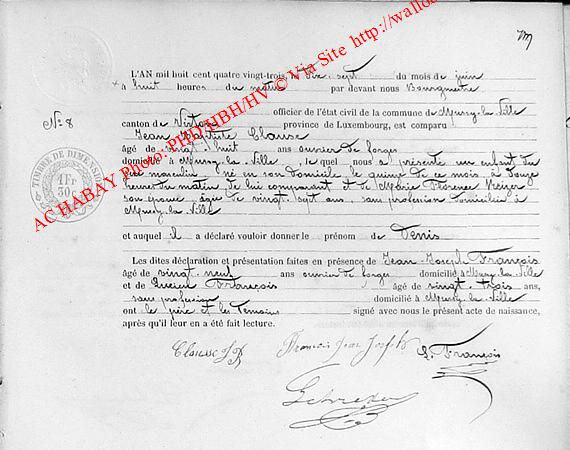 L'AN mil huit cent quatre vingt-trois, le dix-sept du mois de juin
à huit heures du matin par devant nous Bourgmestre
officier de l'état civil de la commune de Mussy-la-Ville
No 8
canton de Virton province de Luxembourg, est comparu
Jean Baptiste Clausse
âgé de vingt huit ans ouvrier de forges
domicilié à Mussy-la-Ville, lequel nous a présenté un enfant du
sexe masculin né en son domicile le quinze de ce mois à onze
heures du matin de lui comparant et de Marie Florence
son épouse âgée de vingt-sept ans, san profession domiciliée à
Mussy-la-Ville
et auquel il a déclaré vouloir donner le prénom de Denis
Les dites déclaration et présentation faites en présence de Jean-Joseph François
âgé de vingt-neuf ans ouvrier de forges domicilié à Mussy-la-Ville
et de Lucien François, âgé de vingt-trois ans,
sans profession domicilié à Mussy-la-Ville
ont le père et les témoins signé avec nous le présent acte de naissance,
après qu'il leur en a été fait lecture.
Clausse J B François Jean Joseph L. François
TIMBRE DE DIMENSION
1 Fr
30 c
AC HABAY Photo PHD/HBH/HV © Via Site http://wallo